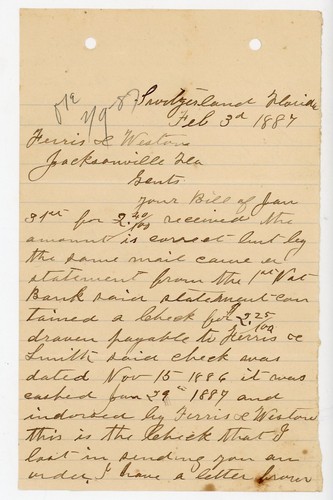 Switzerland Florida
Feb 3d 1887
Ferris & Weston
Jacksonville Fla
Gents
Your Bill of Jan
31st for 2 40/100 received the
amount is correct but by
the same mail came a
statement from the 1st Nat
Bank said statement con
tained a Check for $2.25/100
drawn payable to Ferris &
Smith said check was
dated Nov 15 1886 it was
cashed Jan 29th 1887 and
indorsed by Ferris & Weston
this is the Check that I
lost in sending you an
order I have a letter from